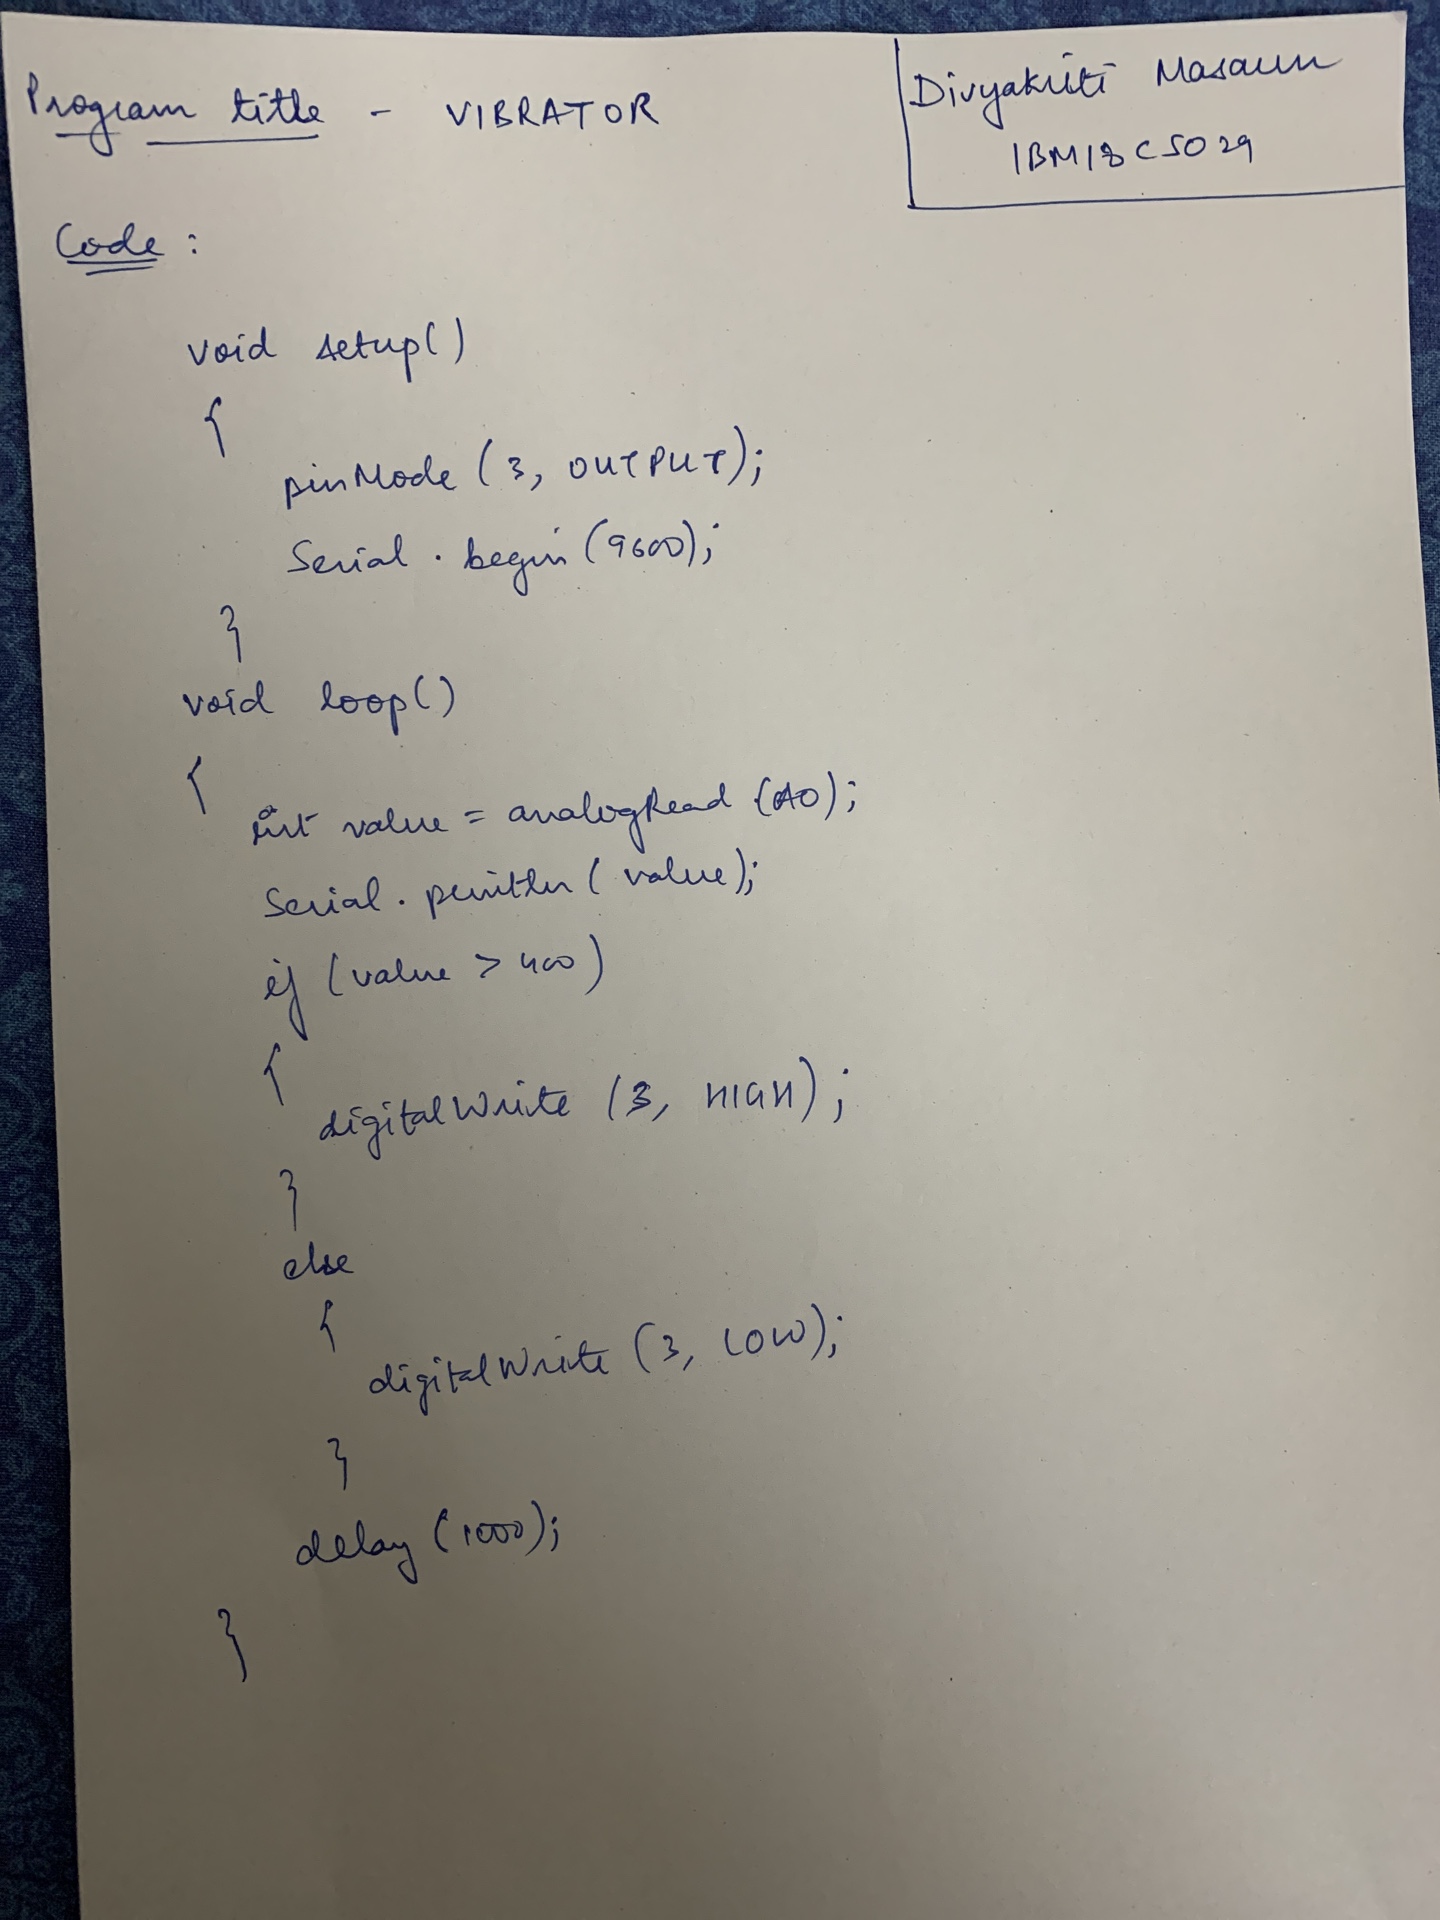 Program title - VIBRATOR
Divyakriti Masaun
1BM18CS029
Code :
void setup()
{
pinMode (3, OUTPUT);
Serial . begin (9600);
}
void loop()
{
int value = analogRead (A0);
Serial . println ( value);
if (value > 400)
{
digitalWrite (3, HIGH);
}
else
{
digitalWrite (3, LOW);
}
delay (1000);
}